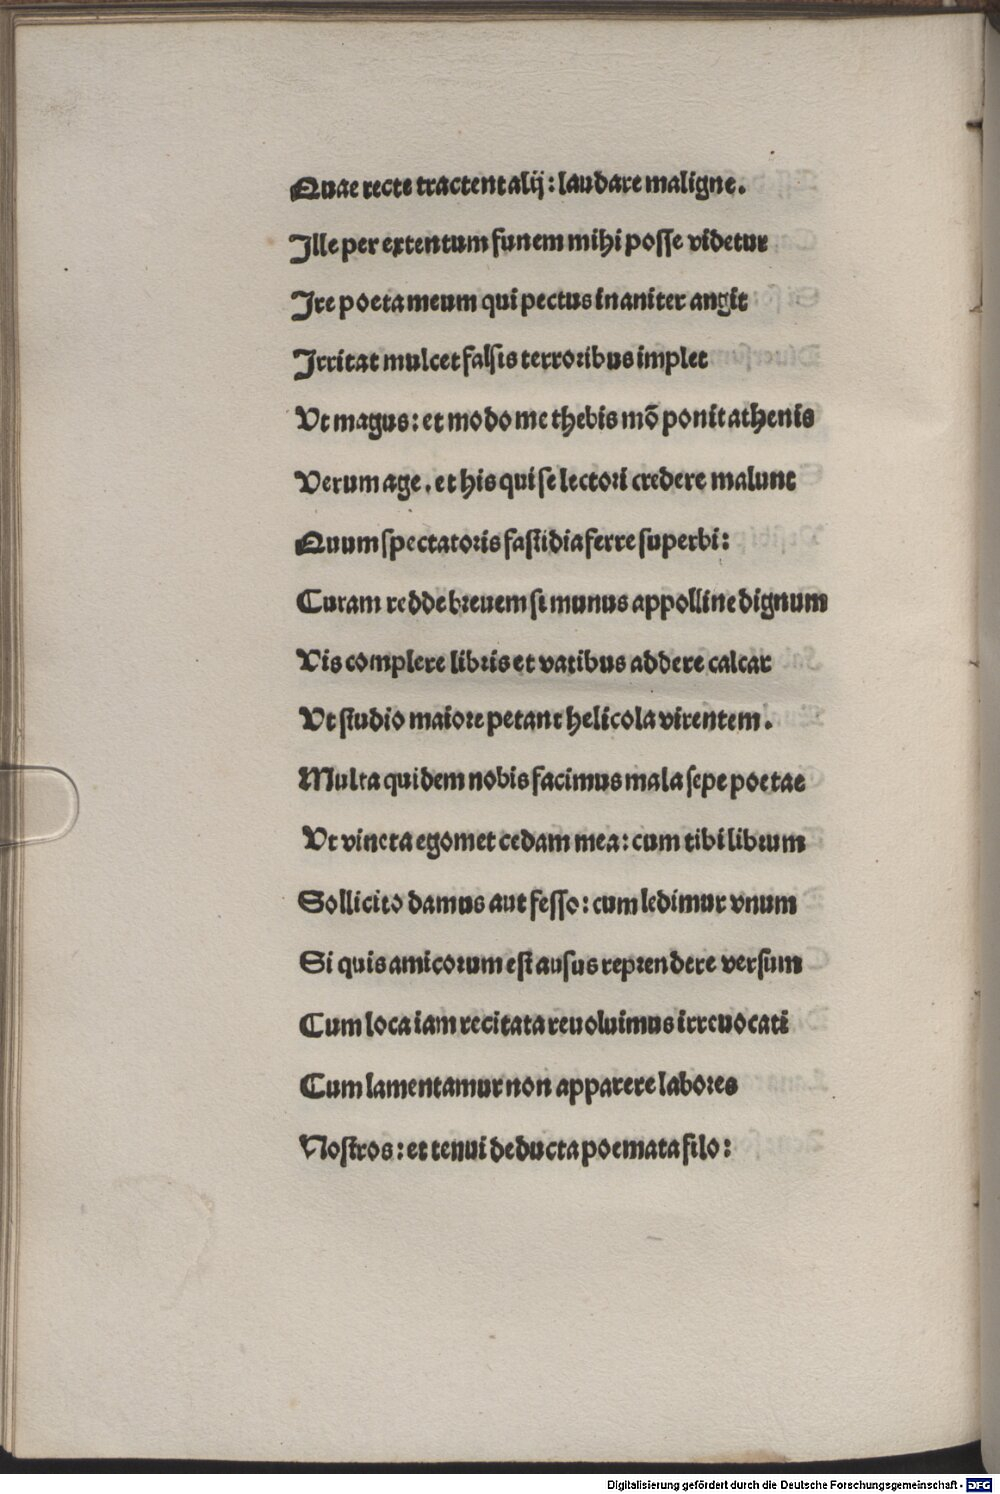 Quae recte tractent alij: laudare maligne.
Ille per extentum funem mihi posse videtur
Ire poeta meum qui pectus inaniter angit
Irritat mulcet falsis terroribus implet
Vt magus: et modo me thebis mõ ponit athenis
Verum age. et his qui se lectori credere malunt
Quum spectatoris fastidia ferre superbi:
Curam redde breuem si munus appolline dignum
Vis complere libris et vatibus addere calcar
Vt studio maiore petant helicola virentem.
Multa quidem nobis facimus mala sepe poetae
Vt vincta egomet cedam mea: cum tibi librum
Sollicito damus aut fesso: cum ledimur vnum
Si quis amicorum est ausus reprendere versum
Cum loca iam recitata reuoluimus irreuocati
Cum lamentamur non apparere labores
Nostros: et tenui deducta poemata filo:
Digitalisierung gefördert durch die Deutsche Forschungsgemeinschaft - DFG